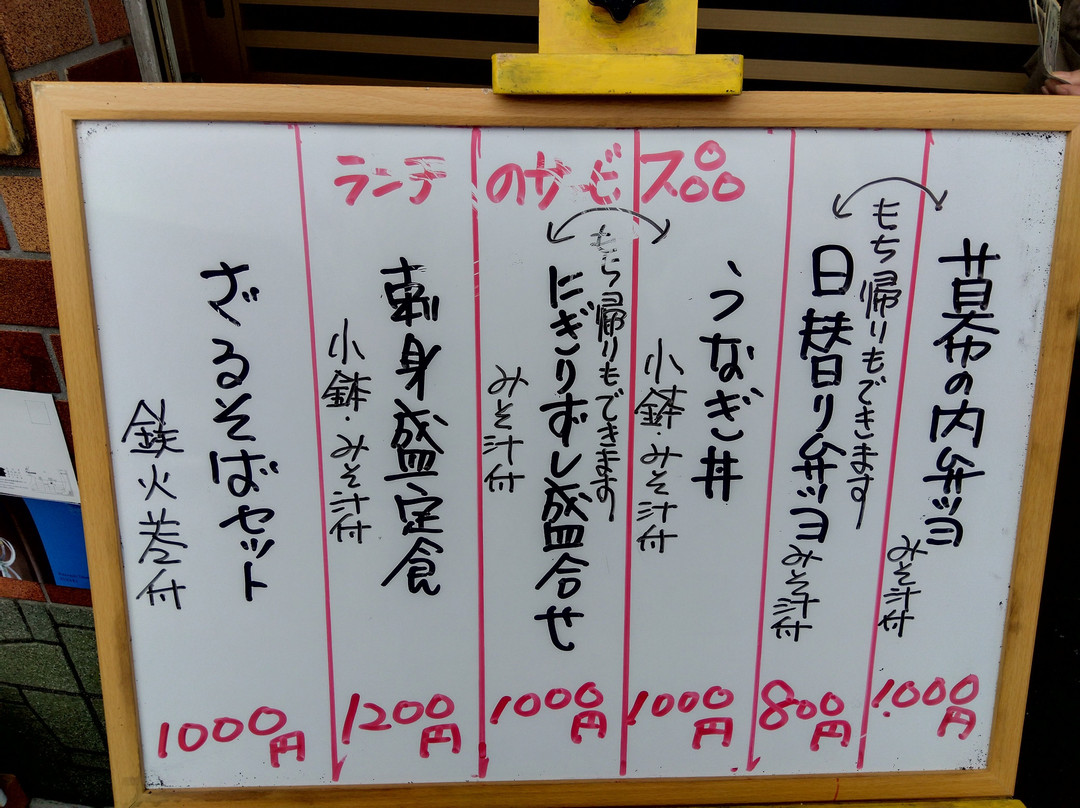 ランチのサービス品
幕の内弁当
みそ汁付
1000円
もち帰りもできます
日替り弁当
みそ汁付
800円
うなぎ丼
小鉢・みそ汁付
1000円
もち帰りもできます
にぎりずし盛合せ
みそ汁付
1000円
刺身盛定食
小鉢・みそ汁付
1200円
ざるそばセット
鉄火巻付
1000円